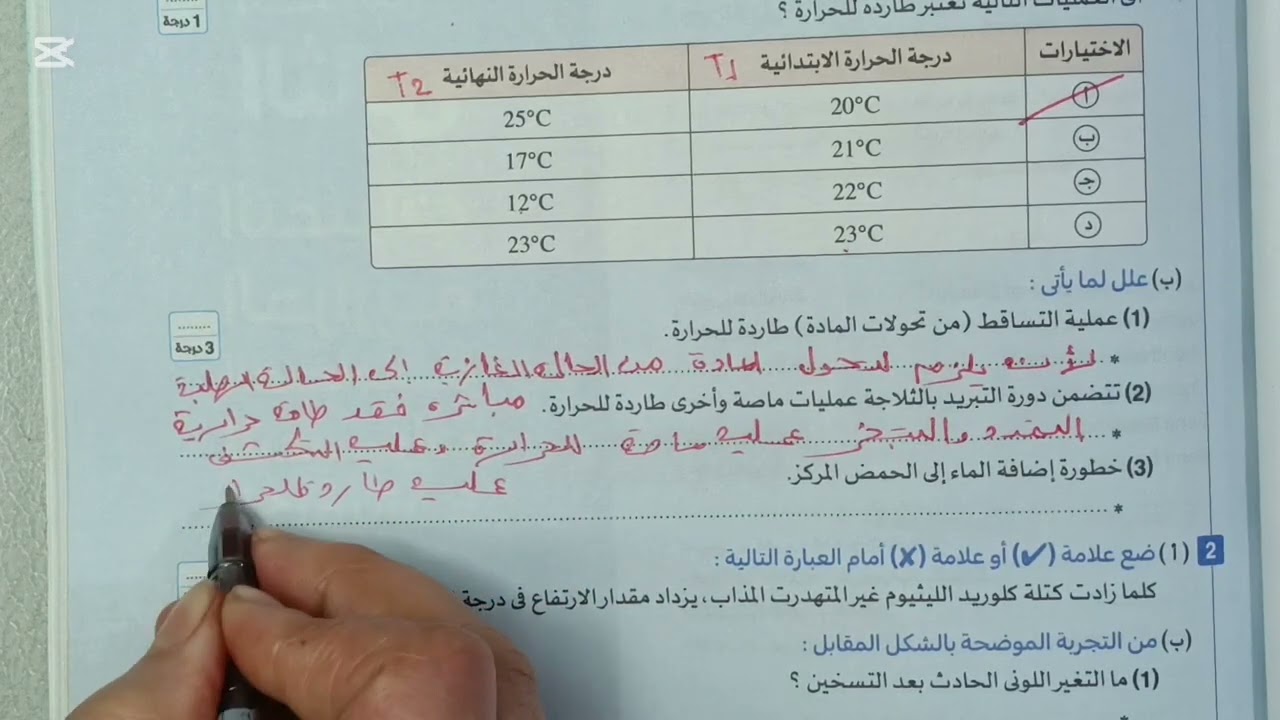 1 درجة
أى العمليات التالية تعتبر طاردة للحرارة ؟
الاختيارات درجة الحرارة الابتدائية T1 درجة الحرارة النهائية T2
أ 20°C 25°C
ب 21°C 17°C
ج 22°C 12°C
د 23°C 23°C
(ب) علل لما يأتى :
(1) عملية التساقط (من تحولات المادة) طاردة للحرارة.
3 درجة
* لتحول المادة من الحالة الغازية إلى الحالة الصلبة
مباشرة فقد طاقة حرارية
(2) تتضمن دورة التبريد بالثلاجة عمليات ماصة وأخرى طاردة للحرارة.
* التمدد والتبخر عملية ماصة للحرارة وعملية التكثف
عملية طاردة
(3) خطورة إضافة الماء إلى الحمض المركز.
*
2 (1) ضع علامة (✔) أو علامة (✘) أمام العبارة التالية :
كلما زادت كتلة كلوريد الليثيوم غير المتهدرت المذاب، يزداد مقدار الارتفاع فى درجة
(ب) من التجربة الموضحة بالشكل المقابل :
(1) ما التغير اللونى الحادث بعد التسخين ؟
*